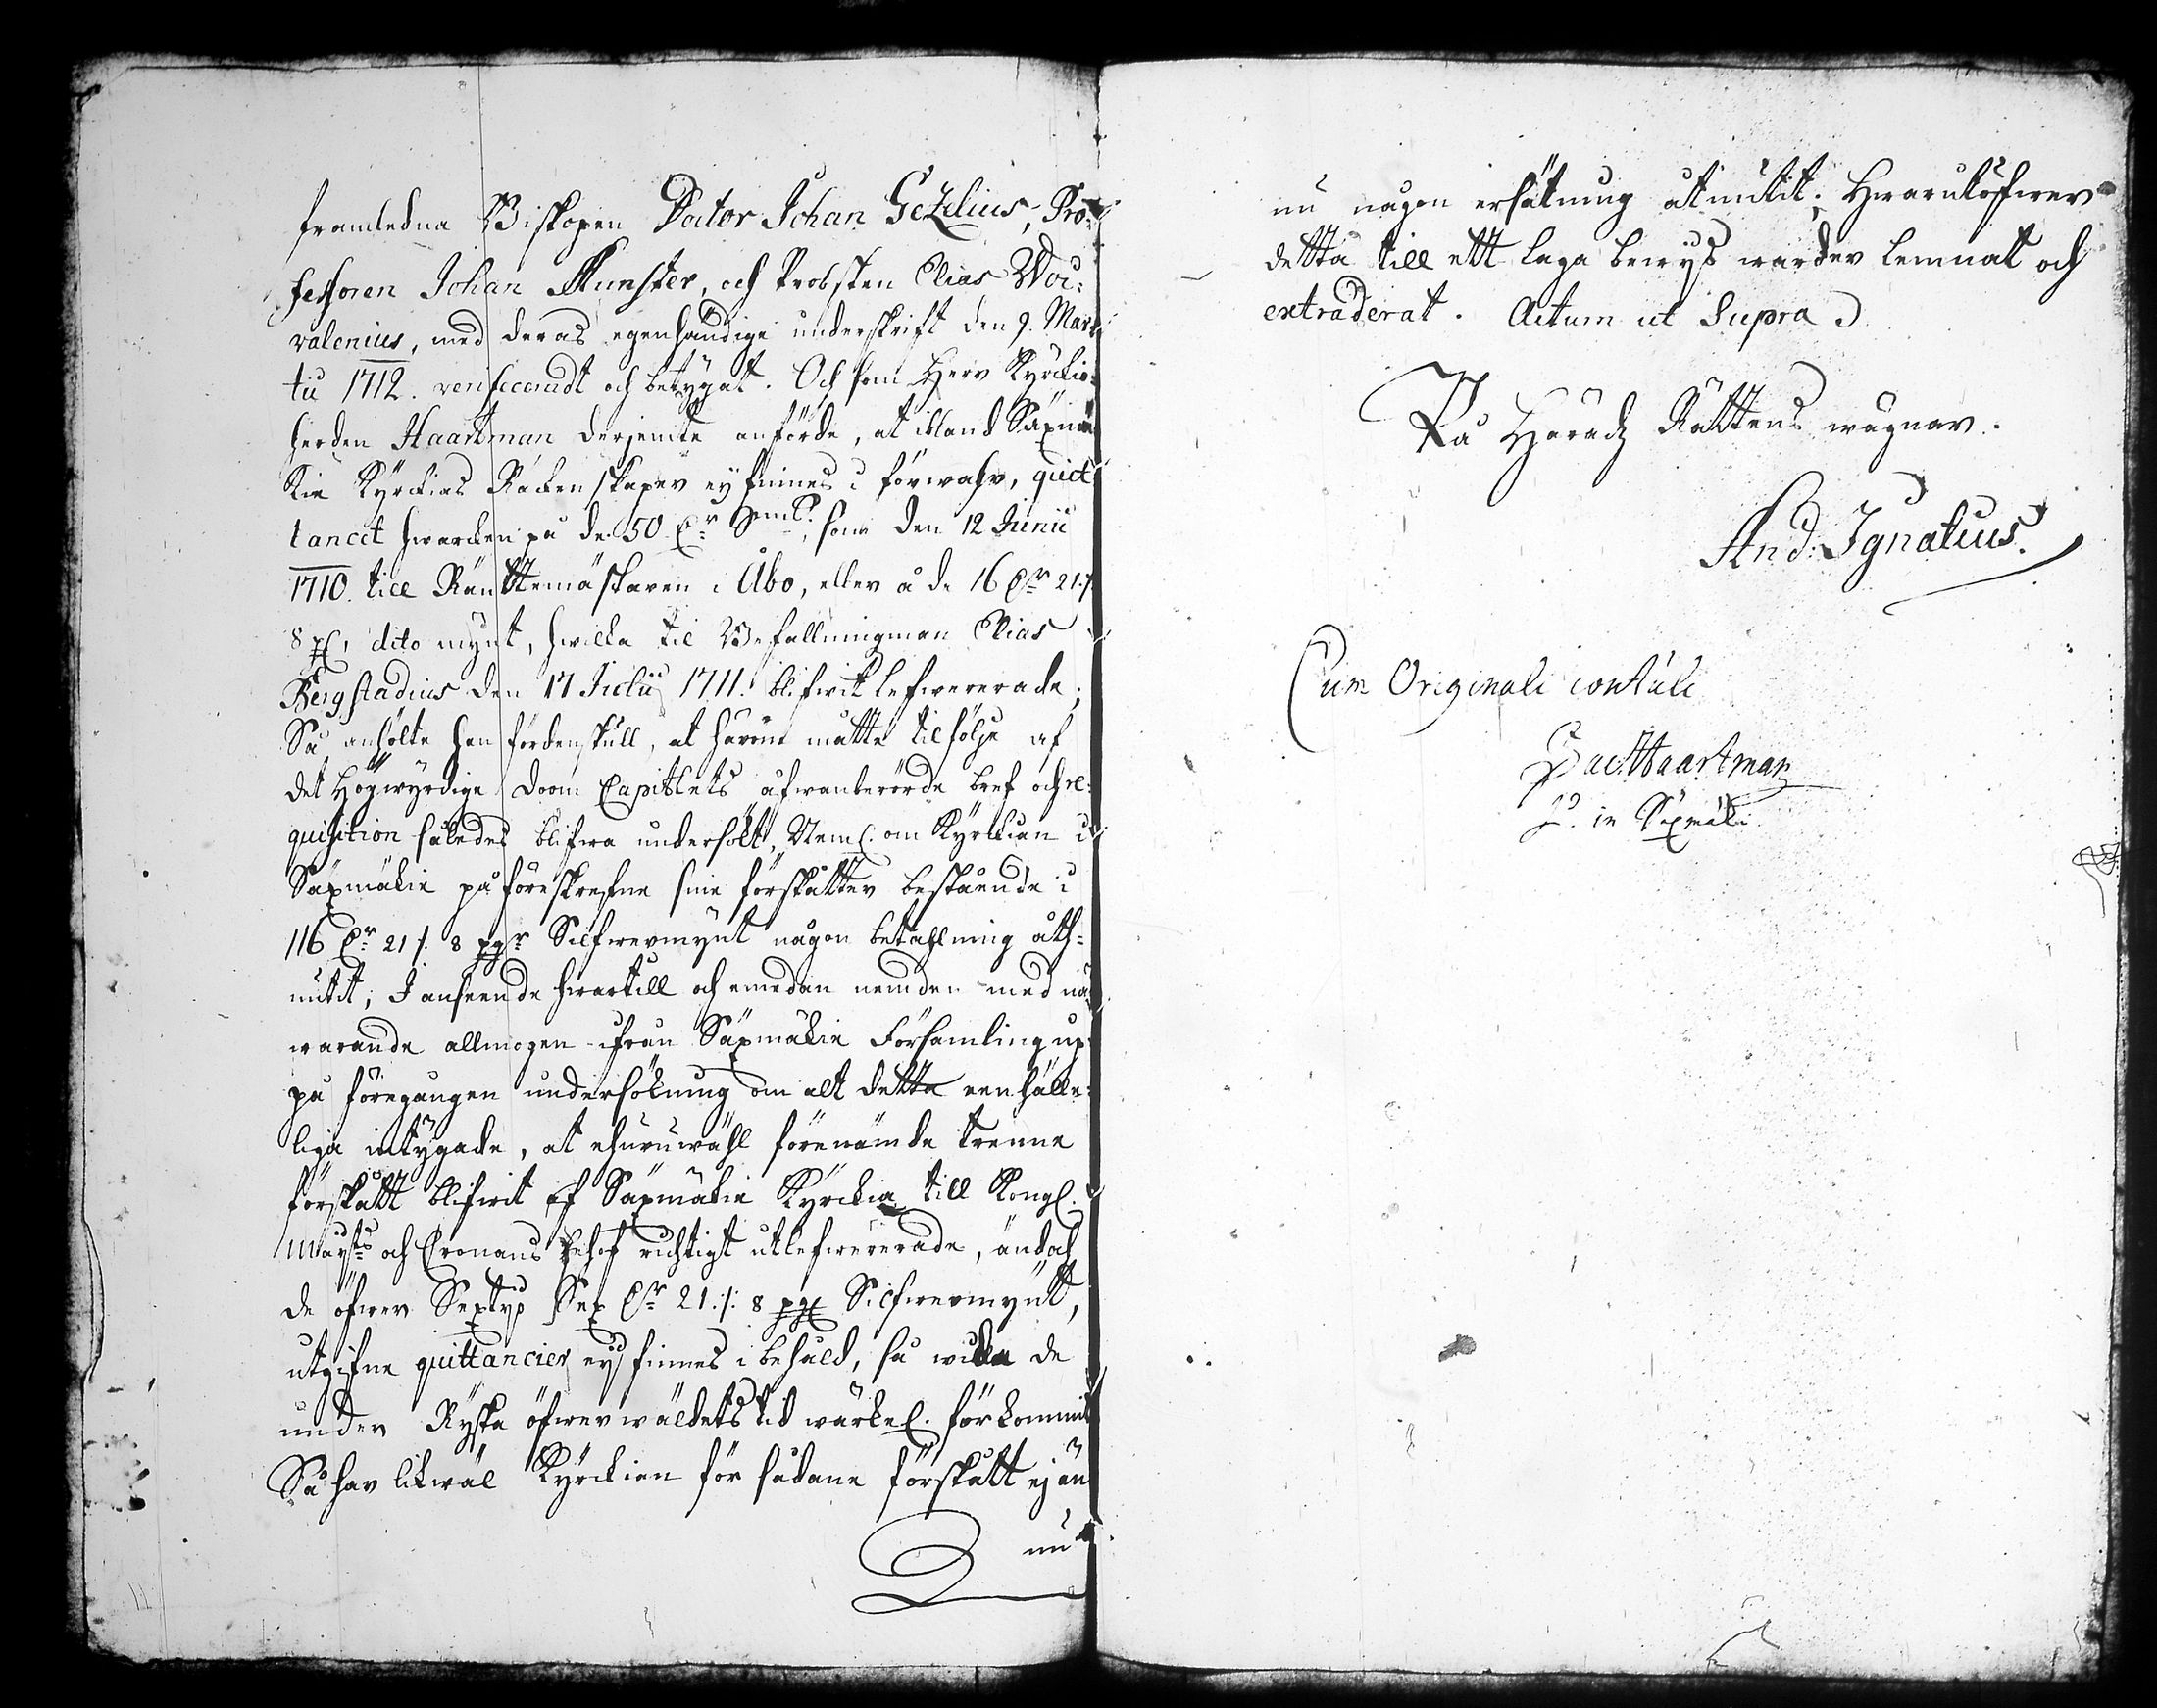 framledna Biskopen Doctor Johan Gezelius, Pro-
fessoren Johan Munster, och Probsten Elias Woi-
valenius, med deras egenhändige underskrift den 9. Mar-
tii 1712. verificeradt och betygat. Och som Herr Kyrckio-
herden Haartman derjemte anförde, at ibland Säxmä-
kie Kyrckias Räckenskaper ej finnes i förwahr, quit-
tancit hwarcken på de 50 Dr Smt, som den 12 Junii
1710. till Ränttemästaren i Åbo, eller å de 16 Dr 21./.
8 , dito mynt, hwilka til Befallningman Elias
Bergstadius den 17 Julii 1711. blifwit lefwererade;
Så anhölte han fördenskull, at härom måtte tilfölje af
det Högwyrdige Doom Capitlets åfwanberörde bref och re-
quisition således blifwa undersökt, Neml. om Kyrckian i
Säxmäkie på föreskrefne sine förskåtter bestående i
116 Dr 21 /. 8 Silfwermynt någon betahlning åth-
niutit; I anseende hwartill och emedan nemden med när-
warande allmogen ifrån Säxmäkie Församling up-
på föregången undersökning om alt detta eenhälle-
liga intygade, at ehuruwähl förenämde trenne
förskått blifwit af Säxmäkie Kyrckia till Kongl.
Maijts och Cronans behof richtigt utlefwererade, ändoch
de öfwer Sextijo Sex Dr 21./. 8 Silfwermynt,
utgifne quittancier ej finnes i behåld, så wida de
under Ryska öfwerwäldets tid wärckel. förkommit
Så har likwäl Kyrckian för sådane förskått ej än-
nu
nu någon ersätning åtniutit; Hwarutöfwer
detta till ett laga bewijs warder lemnat och
extraderat. Actum ut Supra
På Häradz Rättens wägnar.
And: Ignatius
Cum Originali contuli
Haartman
P. in Säxmäki.